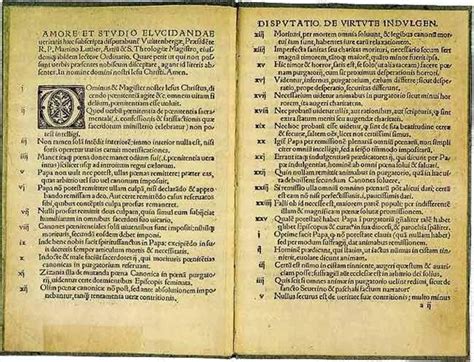 AMORE ET STVDIO ELVCIDANDAE
ueritatis hæc subscripta disputabunť Vuittenbergæ, Præsidēte
R. P. Martino Luther, Artiū & S. Theologiæ Magistro, eius-
demq; ibidem lectore Ordinario. Quare petit ut qui non pos-
sunt uerbis præsentes nobiscum disceptare, agant id literis absen-
tes. In nomine domini nostri Iesu Christi. Amen.
Ominus & Magister noster Iesus Christus, di-
cendo pœnitentiā agite &c, omnem uitam fi-
delium, pœnitentiam esse uoluit.
ij Quod uerbū pœnitentia de pœnitentia sacra-
mentali (.i. confessionis & satisfactionis quæ
sacerdotum ministerio celebratur) non po-
test intelligi.
iij Non tamen solā intēdit interiorē; immo interior nulla est, nisi
foris operetur uarias carnis mortificationes.
iiij Manet itaq; pœna donec manet odium sui (.i. pœnitentia uera
intus) scilicet usq; ad introitum regni cælorum.
v Papa non uult nec potest, ullas pœnas remittere; præter eas,
quas arbitrio uel suo uel canonum imposuit.
vj Papa nō potest remittere ullam culpā, nisi declarādo & appro-
bando remissam a deo. Aut certe remittēdo casus reseruatos
sibi, quibus contēptis culpa prorsus remaneret.
vij Nulli prorsus remittit deus culpam, quin simul eum subijciat
humiliatum in omnibus sacerdoti suo uicario.
viij Canones pœnitentiales solū uiuentibus sunt impositi; nihilq;
morituris, secundū eosdem debet imponi.
ix Inde bene nobis facit spiritussanctus in Papa; excipiēdo in su-
is decretis semper articulum mortis & necessitatis.
x Indocte & male faciūt sacerdotes ij, qui morituris pœnitētias
canonicas in purgatorium reseruant.
xj Zizania illa de mutanda pœna Canonica in pœnā purgato-
rij, uidentur certe dormientibus Episcopis seminata.
xij Olim pœnæ canonicæ nō post, sed ante absolutionem im po-
nebantur, tanq̄ tentamenta ueræ contritionis.
DISPVTATIO. DE VIRTVTE INDVLGEN.
xiij Morituri, per mortem omnia soluunt, & legibus canonū mor-
tui iam sunt, habentes iure earū relaxationem.
xiiij Imperfecta sanitas seu charitas morituri, necessario secum fert
magnū timorem, tantoq; maiorē, quanto minor fuerit ipsa.
xv Hic timor & horror, satis est, se solo (ut alia taceam) facere pœ-
nam purgatorij, cum sit proximus desperationis horrori.
xvj Videntur, infernus, purgatoriū, cælum differre; sicut despera-
tio, prope desperatio, securitas differunt.
xvij Necessariū uidetur animabus in purgatorio sicut minui hor-
rorem, ita augeri charitatem.
xviij Nec probatū uidetur ullis, aut rationibus, aut scripturis, q sint
extra statum meriti seu augendæ charitatis.
xix Nec hoc probatū esse uidetur, q sint de sua beatitudine certæ
& securæ saltem oēs, licet nos certissimi simus.
xx Igitur Papa per remissionē plenariā omniū pœnarū, non sim-
pliciter omniū intelligit, sed a seipso tantūmodo impositarū.
xxj Errant itaq; indulgentiarū prædicatores ij, qui dicunt per Pa-
pæ indulgentias, hominē ab omni pœna solui & saluari.
xxij Quin nullam remittit animabus in purgatorio, quā in hac ui-
ta debuissent secundum Canones soluere.
xxiij Si remissio ulla omniū omnino pœnarū pōt alicui dari; certū
est eam nō nisi perfectissimis .i. paucissimis dari.
xxiiij Falli ob id necesse est, maiorem partem populi; per indifferen-
tem illam & magnificam pœnæ solutæ promissionem.
xxv Qualē potestatē habet Papa ī purgatoriū gñaliter talē habet
quilibet Episcopus & Curatus in sua diocesi & parochia spāliter.
j Optime facit Papa, q nō potestate clauis (quā nullam habet)
sed per modum suffragij, dat animabus remissionem.
ij Hominē prædicant, qui statim, ut iactus nummus in cistam tin-
nierit, euolare dicunt animam.
iij Certū est nummo in cistam tinniente, augeri quæstum & auari-
ciam posse; suffragiū aūt ecclesiæ est in arbitrio dei solius.
iiij Quis scit si omnes animæ in purgatorio uelint redimi, sicut de
sancto Seuerino & paschali factum narratur.
v Nullus securus est de ueritate suæ contritionis; multominus
a ij